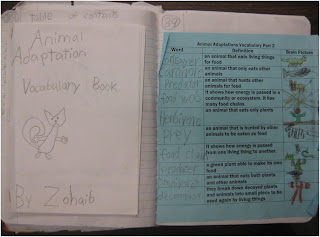 table of contents
Animal
Adaptation
Vocabulary Book
By Zohaib
39
Animal Adaptations Vocabulary Part 2
Word Definition Brain Picture
an animal that eats living things
for food
an animal that only eats other
animals
an animal that hunts other
animals for food
food web
It shows how energy is passed in a
community or ecosystem. It has
many food chains.
an animal that eats only plants
prey
an animal that is hunted by other
animals to be eaten as food
food chain
It shows how energy is passed
from one living thing to another.
a green plant able to make its own
food
an animal that eats both plants
and other animals
they break down decayed plants
and animals into small piens to be
used again by living things